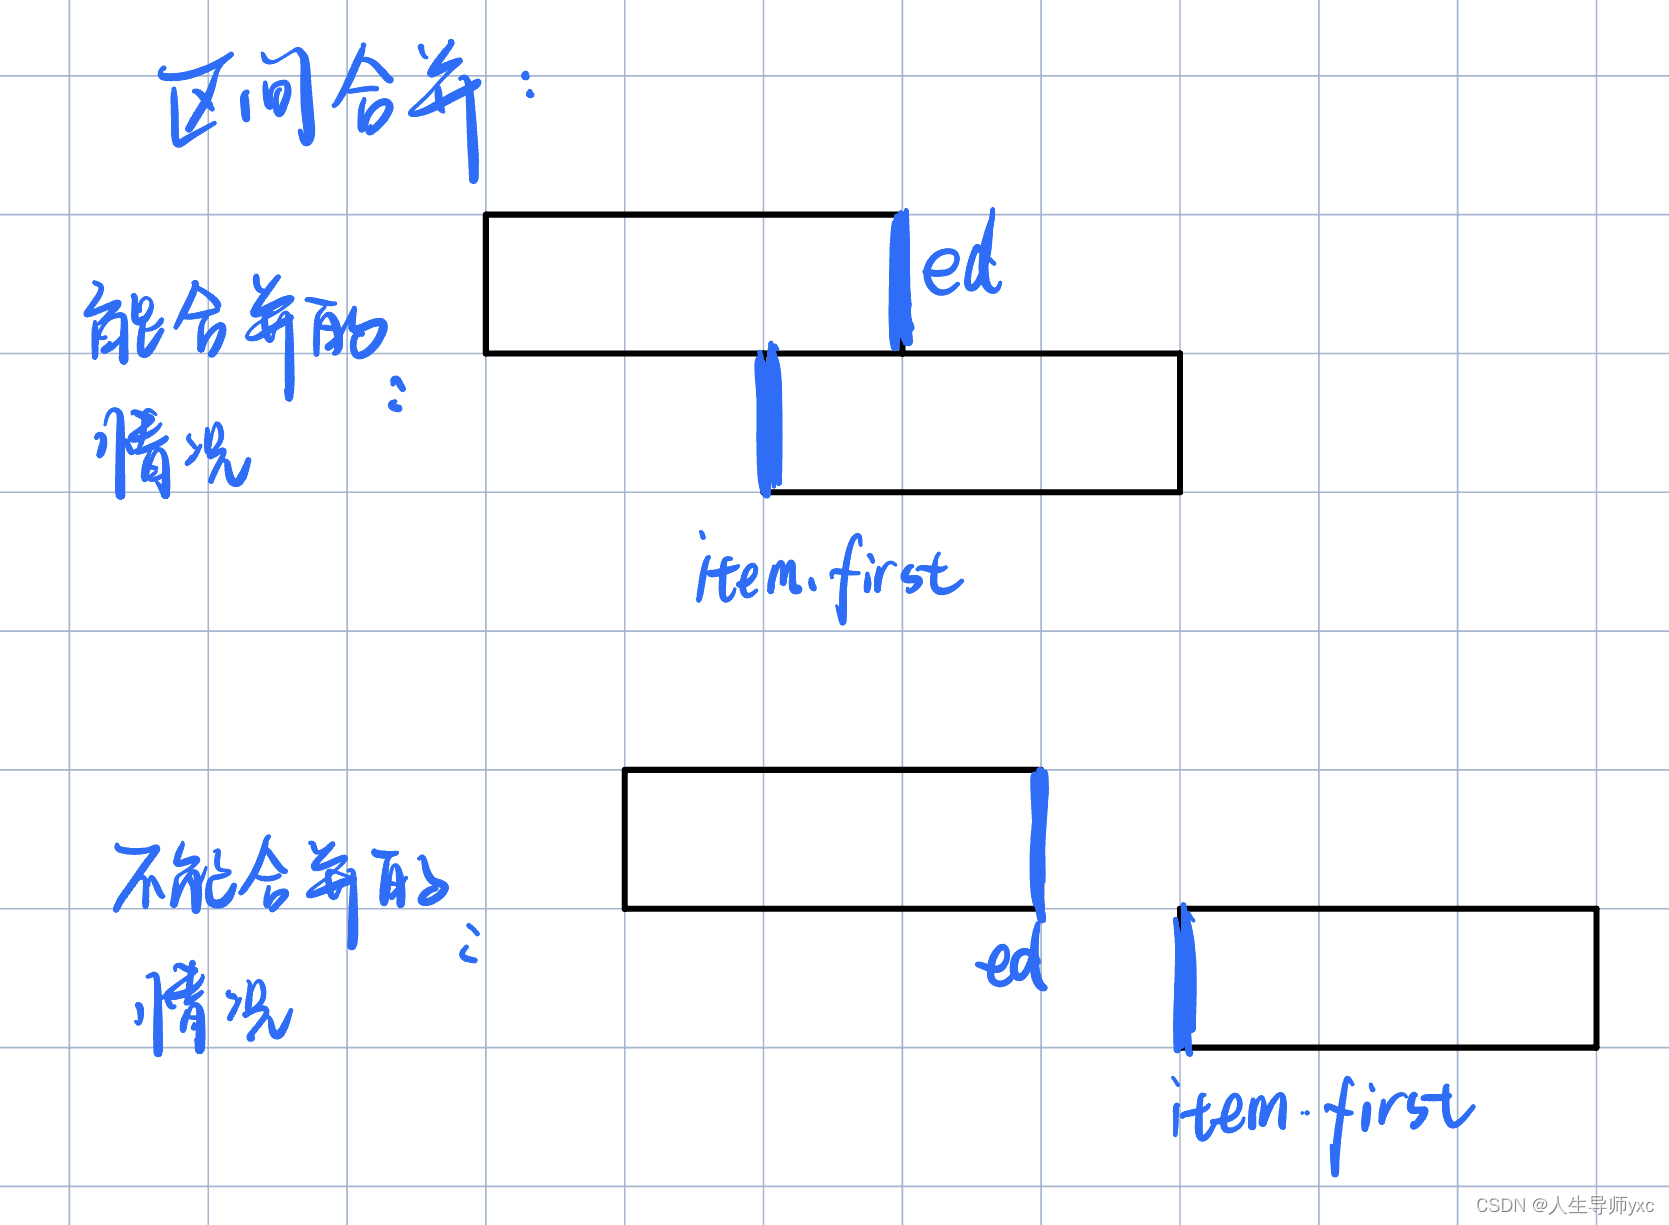 区间合并:
ed
能合并的
情况:
item.first
不能合并的
情况:
ed
item.first
CSDN @人生导师yxc